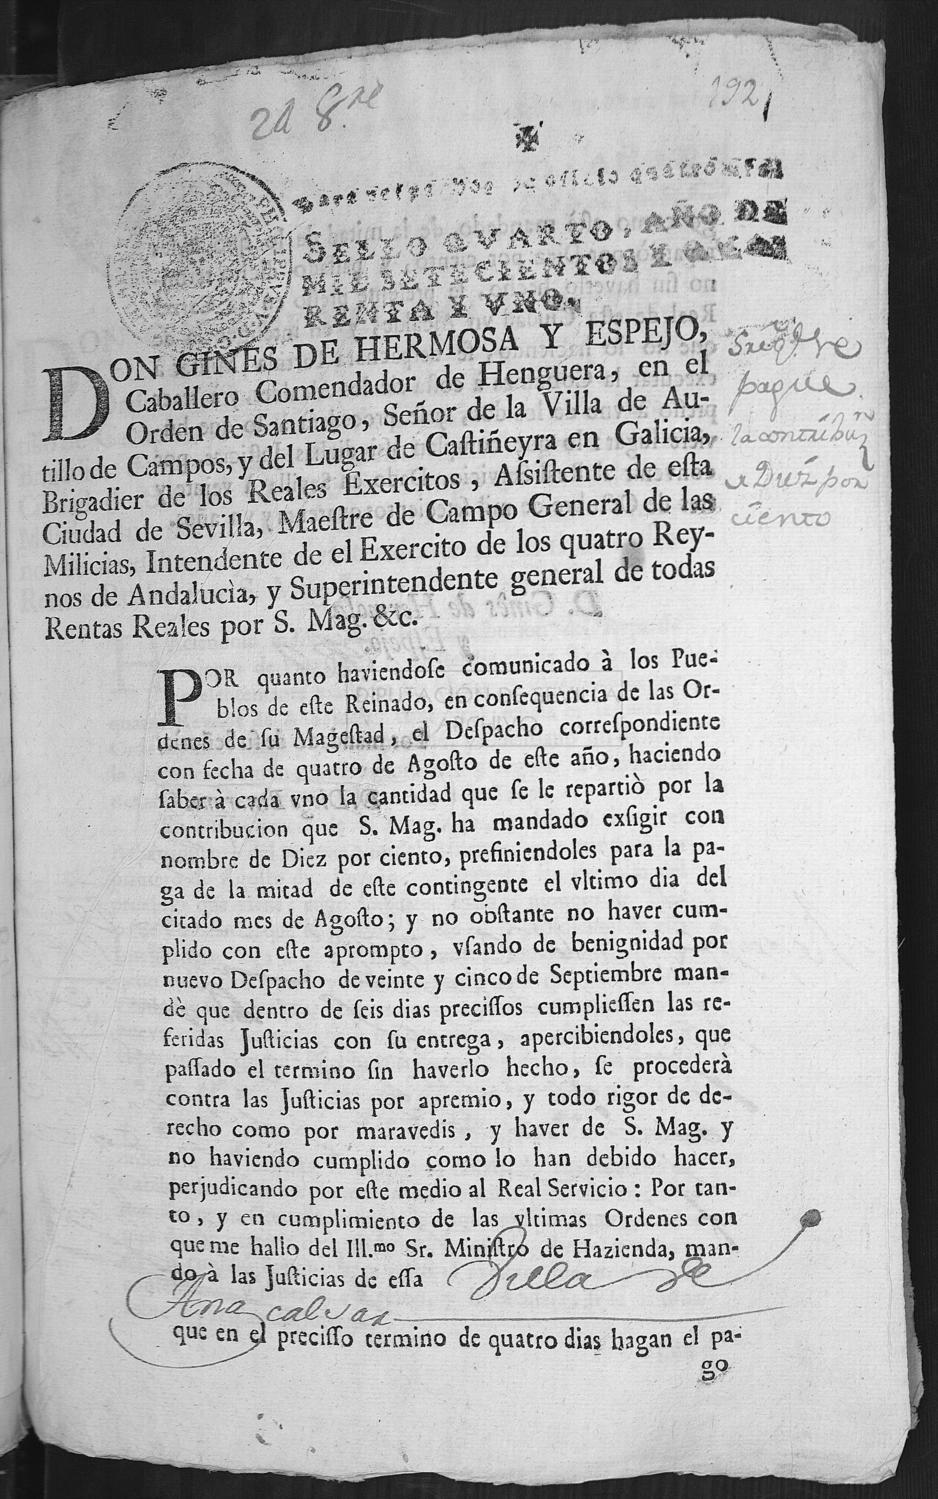 2d 8.re
192
Para despachos de oficio quatro mrs.
SELLO QVARTO, AÑO DE
MIL SETECIENTOS Y QVA-
RENTA Y VNO.
DON GINES DE HERMOSA Y ESPEJO,
Caballero Comendador de Henguera, en el
Orden de Santiago, Señor de la Villa de Au-
tillo de Campos, y del Lugar de Castiñeyra en Galicia,
Brigadier de los Reales Exercitos, Assistente de esta
Ciudad de Sevilla, Maestre de Campo General de las
Milicias, Intendente de el Exercito de los quatro Rey-
nos de Andalucìa, y Superintendente general de todas
Rentas Reales por S. Mag. &c.
pague
la contribu.n
Diez por
ciento
POR quanto haviendose comunicado à los Pue-
blos de este Reinado, en consequencia de las Or-
denes de su Magestad, el Despacho correspondiente
con fecha de quatro de Agosto de este año, haciendo
saber à cada vno la cantidad que se le repartiò por la
contribucion que S. Mag. ha mandado exsigir con
nombre de Diez por ciento, prefiniendoles para la pa-
ga de la mitad de este contingente el vltimo dia del
citado mes de Agosto; y no obstante no haver cum-
plido con este aprompto, vsando de benignidad por
nuevo Despacho de veinte y cinco de Septiembre man-
dè que dentro de seis dias precissos cumpliessen las re-
feridas Justicias con su entrega, apercibiendoles, que
passado el termino sin haverlo hecho, se procederà
contra las Justicias por apremio, y todo rigor de de-
recho como por maravedis, y haver de S. Mag. y
no haviendo cumplido como lo han debido hacer,
perjudicando por este medio al Real Servicio: Por tan-
to, y en cumplimiento de las vltimas Ordenes con
que me hallo del Ill.mo Sr. Ministro de Hazienda, man-
do à las Justicias de essa Villa de
Anacalcar
que en el precisso termino de quatro dias hagan el pa-
go